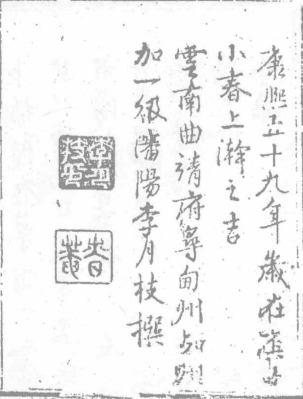 康熙五十九年歲在
小春上澣之吉
雲南曲靖府尋甸州知州
加一級瀋陽李月枝撰
李月枝印